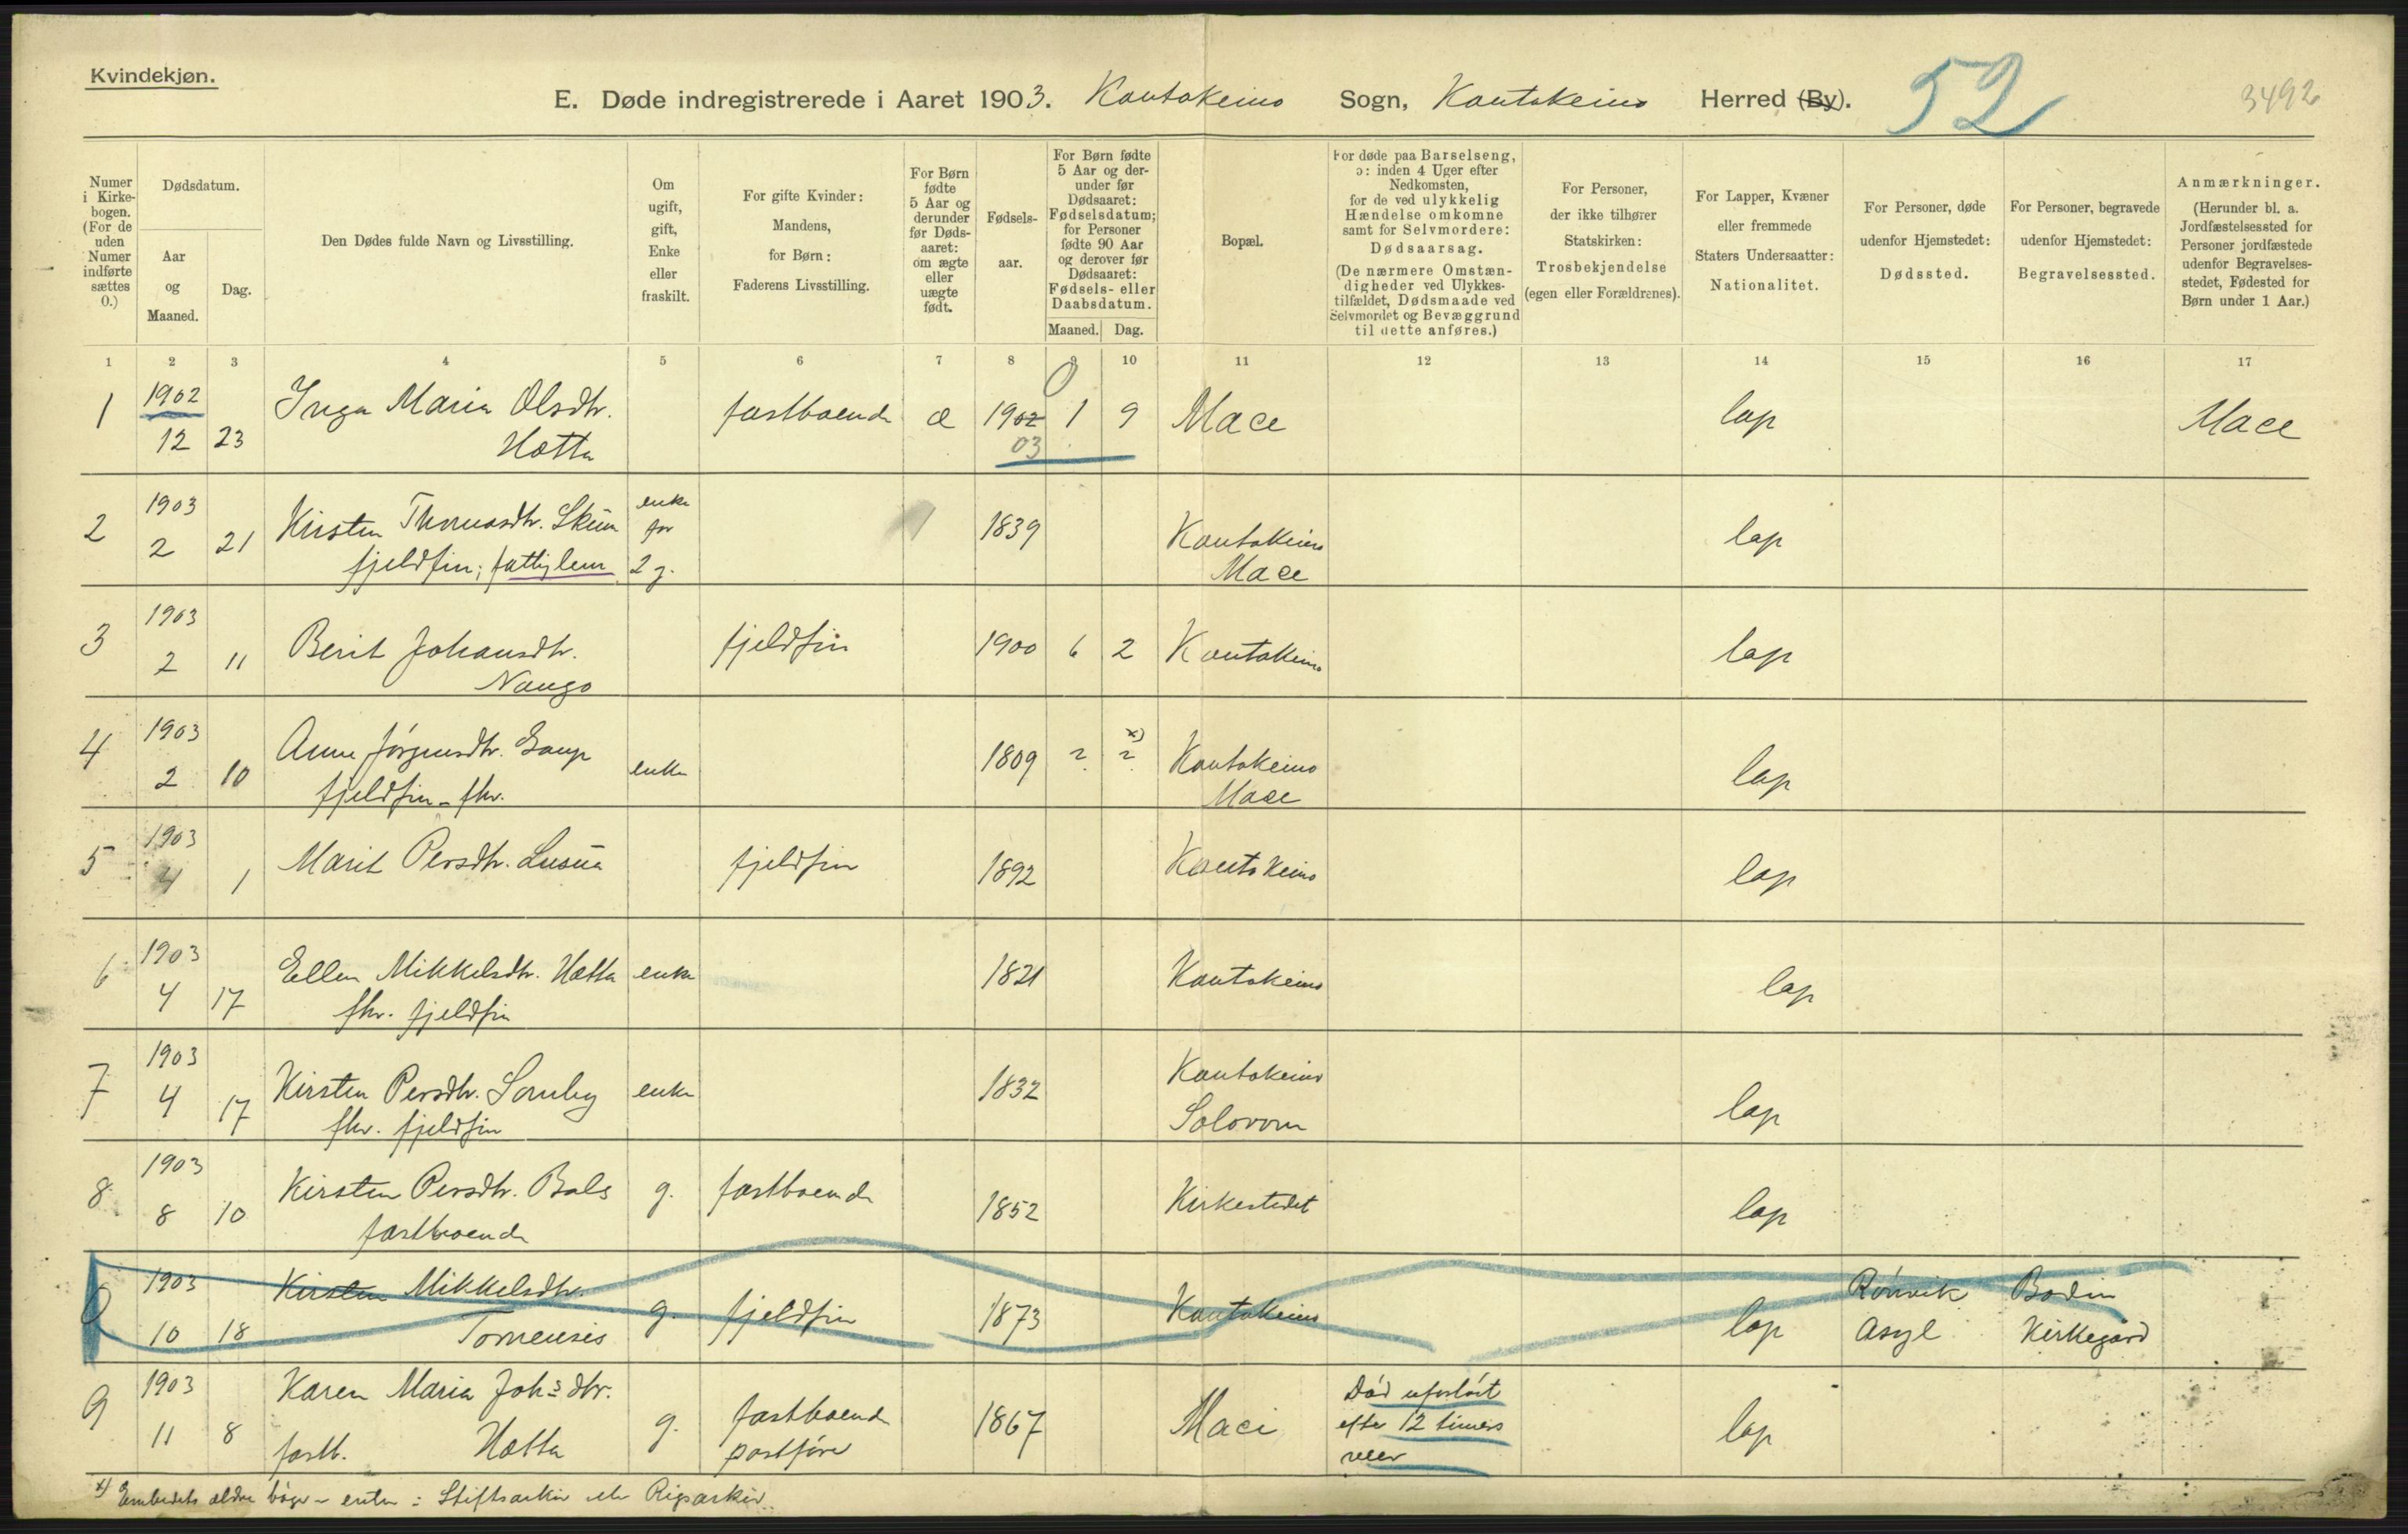 Kvindekjøn.
E. Døde indregistrerede i Aaret 1903. Koutokeino Sogn, Koutokeino Herred (By). 52 3492
Numer i Kirke-bogen. (For de uden Numer indførte sættes 0.)
Dødsdatum.
Aar og Maaned.
Dag.
Den Dødes fulde Navn og Livsstilling.
Om ugift, gift, Enke eller fraskilt.
For gifte Kvinder: Mandens, for Børn: Faderens Livsstilling.
For Børn fødte 5 Aar og derunder før Døds-aaret: om ægte eller uægte født.
Fødsels-aar.
For Børn fødte 5 Aar og der-under før Dødsaaret: Fødselsdatum; for Personer fødte 90 Aar og derover før Dødsaaret: Fødsels- eller Daabsdatum.
Maaned. Dag.
Bopæl.
For døde paa Barselseng, ɔ: inden 4 Uger efter Nedkomsten, for de ved ulykkelig Hændelse omkomne samt for Selvmordere: Dødsaarsag. (De nærmere Omstæn-digheder ved Ulykkes-tilfældet, Dødsmaade ved Selvmordet og Bevæggrund til dette anføres.)
For Personer, der ikke tilhører Statskirken: Trosbekjendelse (egen eller Forældrenes).
For Lapper, Kvæner eller fremmede Staters Undersaatter: Nationalitet.
For Personer, døde udenfor Hjemstedet: Dødssted.
For Personer, begravede udenfor Hjemstedet: Begravelsessted.
Anmærkninger. (Herunder bl. a. Jordfæstelsessted for Personer jordfæstede udenfor Begravelses-stedet, Fødested for Børn under 1 Aar.)
1 2 3 4 5 6 7 8 9 10 11 12 13 14 15 16 17
1 1902 12 23 Inga Maria Olsdtr. Hætta fastboende æ 1902 03 1 9 Mace lap Mace
2 1903 2 21 Kirsten Thomasdtr. Skum enke for
fjeldfin; fattiglem 2 g. 1839 Koutokeino Mace lap
3 1903 2 11 Berit Johansdtr. Nango fjeldfin 1900 6 2 Koutokeino lap
4 1903 2 10 Anne Jörgensdtr. Gaup
fjeldfin - fhv. enke 1809 ? ? x) Koutokeino Mace lap
5 1903 4 1 Marit Persdtr. fjeldfin 1892 Kouto Keino lap
6 1903 4 17 Ellen Mikkelsdtr. Hætta enke
fhv. fjeldfin 1821 Koutokeino lap
7 1903 4 17 Kirsten Persdtr. Somby enke
fhv. fjeldfin 1832 Koutokeino Solovom lap
8 1903 8 10 Kirsten Persdtr. Bals g. fastboende
fastboende 1852 Kirkestedet lap
0 1903 10 18 Kirsten Mikkelsdtr.
Tornensis g. fjeldfin 1873 Koutokeino lap Rönvik Asyl Bodin Kirkegård
9 1903 11 8 Karen Maria Johs dtr.
fastb. Hætta g. fastboende postförer 1867 Maci Död uforlöst efter 12 timers veer lap
x) Embedets ældre böger - enten i Stiftsarkiv eller Rigsarkiv.